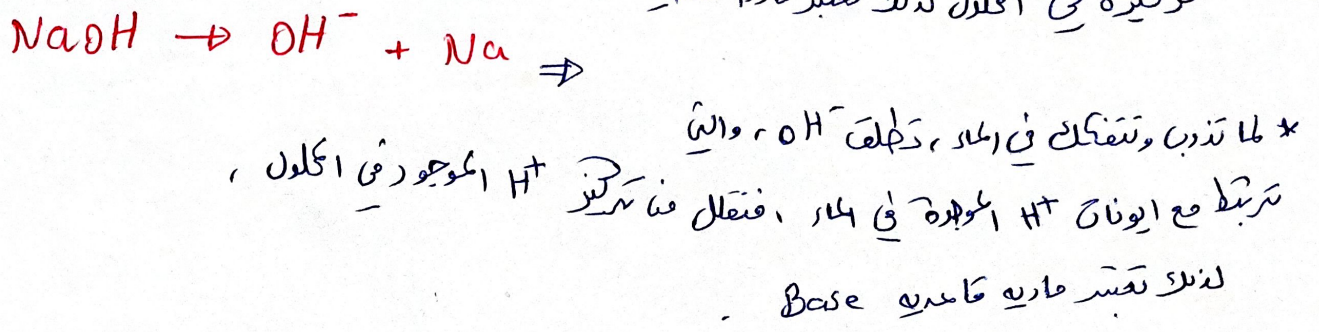 في المحلول لذلك تعتبر
NaOH → OH⁻ + Na ⇒
* لما تذوب وتتفكك في الماء ، تطلق OH⁻ ، والتي
ترتبط مع ايونات H⁺ الموجودة في الماء ، فتقلل من تركيز H⁺ الموجود في المحلول ،
لذلك تعتبر ماديه قاعديه Base .